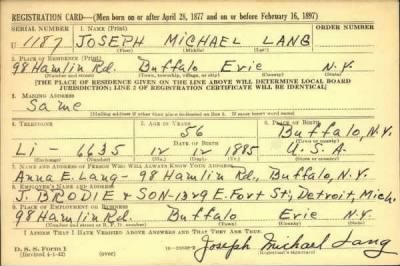 REGISTRATION CARD—(Men born on or after April 28, 1877 and on or before February 16, 1897)
SERIAL NUMBER 1. NAME (Print) ORDER NUMBER
U 1187 JOSEPH MICHAEL LANG
(First) (Middle) (Last)
2. PLACE OF RESIDENCE (Print)
98 Hamlin Rd. Buffalo Erie N.Y.
(Number and street) (Town, township, village, or city) (County) (State)
[THE PLACE OF RESIDENCE GIVEN ON THE LINE ABOVE WILL DETERMINE LOCAL BOARD
JURISDICTION; LINE 2 OF REGISTRATION CERTIFICATE WILL BE IDENTICAL]
3. MAILING ADDRESS
Same
[Mailing address if other than place indicated on line 2. If same insert word same]
4. TELEPHONE 5. AGE IN YEARS 6. PLACE OF BIRTH
56 Buffalo, N.Y.
DATE OF BIRTH
Li - 6635 12 12 1885 U.S.A.
(Exchange) (Number) (Mo.) (Day) (Yr.) (State or country)
7. NAME AND ADDRESS OF PERSON WHO WILL ALWAYS KNOW YOUR ADDRESS
Anna E. Lang - 98 Hamlin Rd., Buffalo, N.Y.
8. EMPLOYER'S NAME AND ADDRESS
J. BRODIE & SON - 1379 E. Fort St., Detroit, Mich.
9. PLACE OF EMPLOYMENT OR BUSINESS
98 Hamlin Rd. Buffalo Erie N.Y.
(Number and street or R. F. D. number) (Town) (County) (State)
I AFFIRM THAT I HAVE VERIFIED ABOVE ANSWERS AND THAT THEY ARE TRUE.
D. S. S. Form 1
(Revised 4-1-42) (over) Joseph Michael Lang